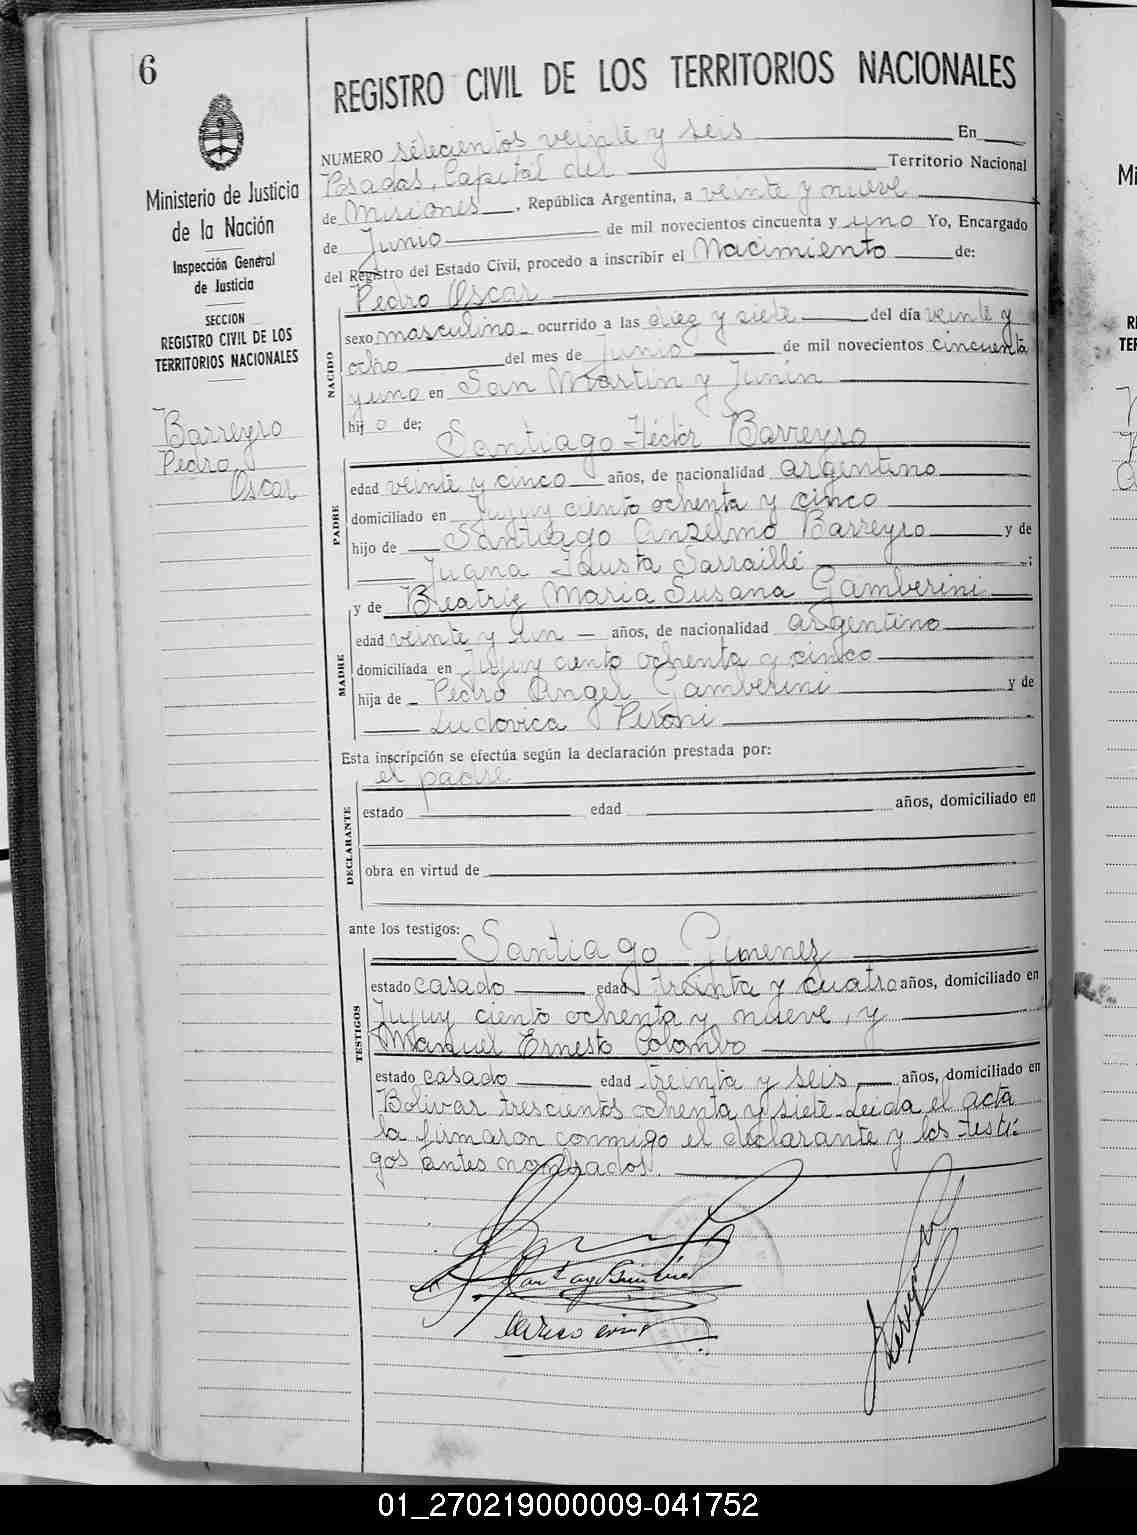 6
REGISTRO CIVIL DE LOS TERRITORIOS NACIONALES
Ministerio de Justicia
de la Nación
Inspección General
de Justicia
SECCION
REGISTRO CIVIL DE LOS
TERRITORIOS NACIONALES
Barreyro
Pedro
Oscar
NUMERO setecientos veinte y seis En
Posadas, Capital del Territorio Nacional
de Misiones, República Argentina, a veinte y nueve
de Junio de mil novecientos cincuenta y uno Yo, Encargado
del Registro del Estado Civil, procedo a inscribir el Nacimiento de:
Pedro Oscar
NACIDO
sexo masculino ocurrido a las diez y siete del día veinte y
ocho del mes de Junio de mil novecientos cincuenta
y uno en San Martin y Junin
hijo de;
Santiago Héctor Barreyro
PADRE
edad veinte y cinco años, de nacionalidad argentino
domiciliado en Jujuy ciento ochenta y cinco
hijo de Santiago Anselmo Barreyro y de
Juana Fausta Sarraillé;
y de Beatriz Maria Susana Gamberini
MADRE
edad veinte y un años, de nacionalidad argentino
domiciliada en Jujuy ciento ochenta y cinco
hija de Pedro Angel Gamberini y de
Ludovica Peroni
Esta inscripción se efectúa según la declaración prestada por:
el padre
DECLARANTE
estado edad años, domiciliado en
obra en virtud de
ante los testigos:
Santiago Gimenez
TESTIGOS
estado casado edad treinta y cuatro años, domiciliado en
Jujuy ciento ochenta y nueve, y
Manuel Ernesto Colombo
estado casado edad treinta y seis años, domiciliado en
Bolivar trescientos ochenta y siete. Leida el acta
la firmaron conmigo el declarante y los testi-
gos antes nombrados.
01_270219000009-041752